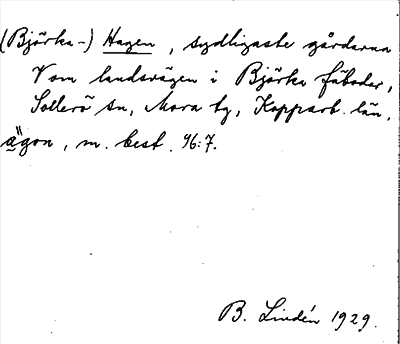 (Björka-) Hagen, sydligaste gårdarna
V om landsvägen i Björka fäboder,
Sollerö sn, Mora tg, Kopparb. län,
ägon, m. best. 46:7.
B. Lindén 1929.